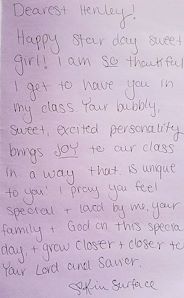 Dearest Henley!
Happy star day sweet
girl! I am so thankful
I get to have you in
my class. Your bubbly,
sweet, excited personality
brings JOY to our class
in a way that is unique
to you! I pray you feel
special + loved by me, your
family + God on this special
day, + grow closer + closer to
Your Lord and Savior.
Surface